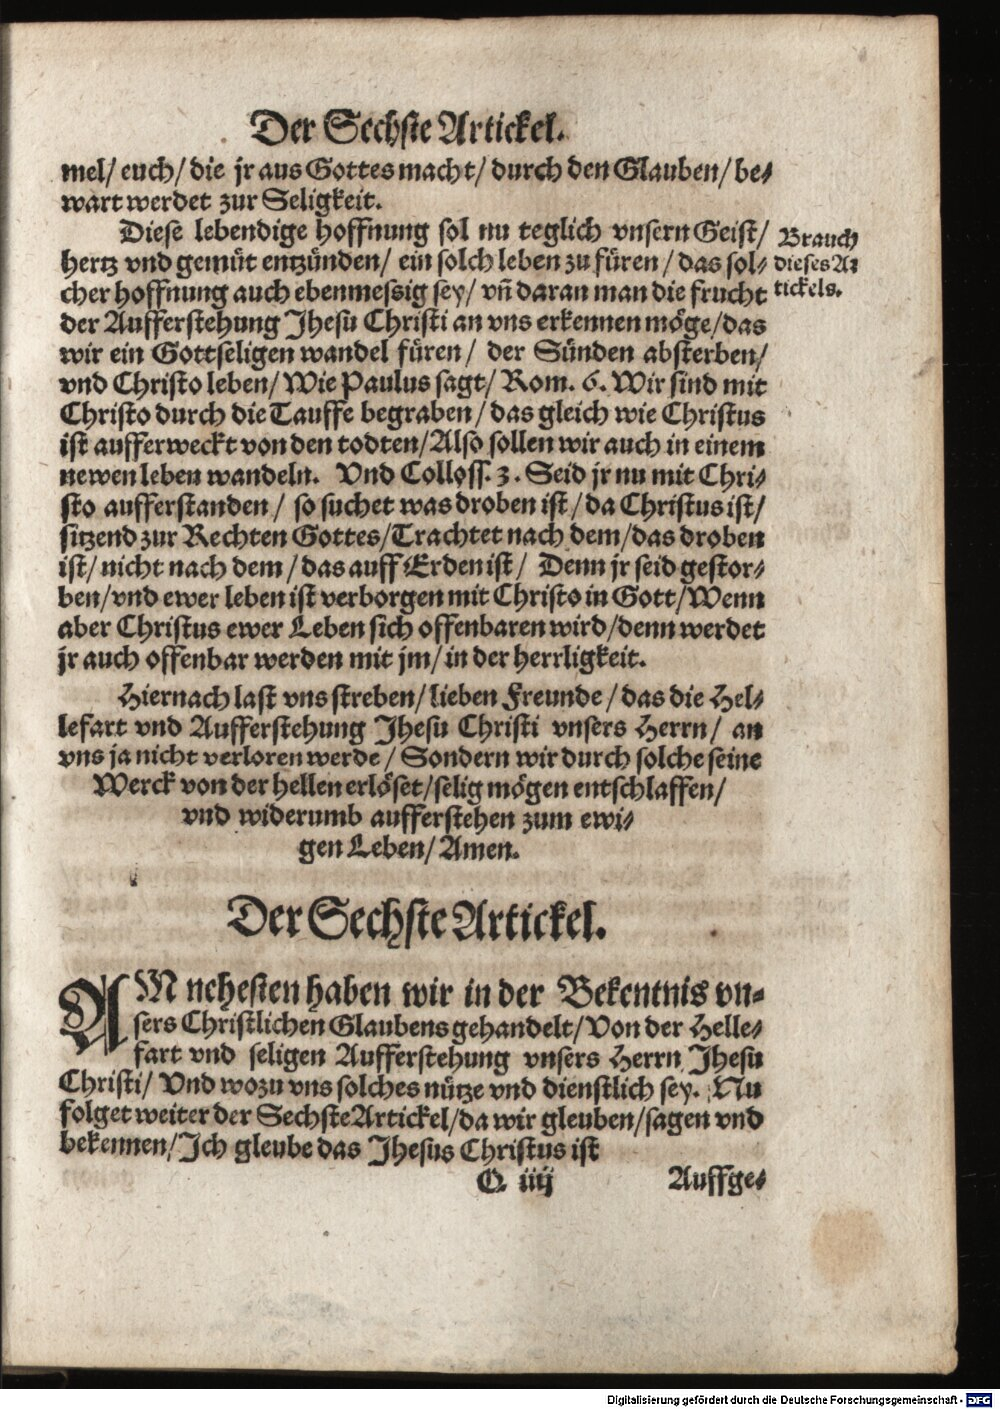 Der Sechste Artickel.
mel/ euch/ die jr aus Gottes macht/ durch den Glauben/ be⸗
wart werdet zur Seligkeit.
Diese lebendige hoffnung sol nu teglich vnsern Geist/
hertz vnd gemüt entzünden/ ein solch leben zu füren/ das sol⸗
cher hoffnung auch ebenmessig sey/ vñ daran man die frucht
der Aufferstehung Jhesu Christi an vns erkennen möge/ das
wir ein Gottseligen wandel füren/ der Sünden absterben/
vnd Christo leben/ Wie Paulus sagt/ Rom. 6. Wir sind mit
Christo durch die Tauffe begraben/ das gleich wie Christus
ist aufferweckt von den todten/ Also sollen wir auch in einem
newen leben wandeln. Vnd Colloss. 3. Seid jr nu mit Chri⸗
sto aufferstanden/ so suchet was droben ist/ da Christus ist/
sitzend zur Rechten Gottes/ Trachtet nach dem/ das droben
ist/ nicht nach dem/ das auff Erden ist/ Denn jr seid gestor⸗
ben/ vnd ewer leben ist verborgen mit Christo in Gott/ Wenn
aber Christus ewer Leben sich offenbaren wird/ denn werdet
jr auch offenbar werden mit jm/ in der herrligkeit.
Brauch
dieses Ar
tickels.
Hiernach last vns streben/ lieben Freunde/ das die Hel⸗
lefart vnd Aufferstehung Jhesu Christi vnsers Herrn/ an
vns ja nicht verloren werde/ Sondern wir durch solche seine
Werck von der hellen erlöset/ selig mögen entschlaffen/
vnd widerumb aufferstehen zum ewi⸗
gen Leben/ Amen.
Der Sechste Artickel.
AM nehesten haben wir in der Bekentnis vn⸗
sers Christlichen Glaubens gehandelt/ Von der Helle⸗
fart vnd seligen Aufferstehung vnsers Herrn Jhesu
Christi/ Vnd wozu vns solches nütze vnd dienstlich sey. Nu
folget weiter der Sechste Artickel/ da wir gleuben/ sagen vnd
bekennen/ Ich gleube das Jhesus Christus ist
O iiij
Auffge⸗
Digitalisierung gefördert durch die Deutsche Forschungsgemeinschaft - DFG